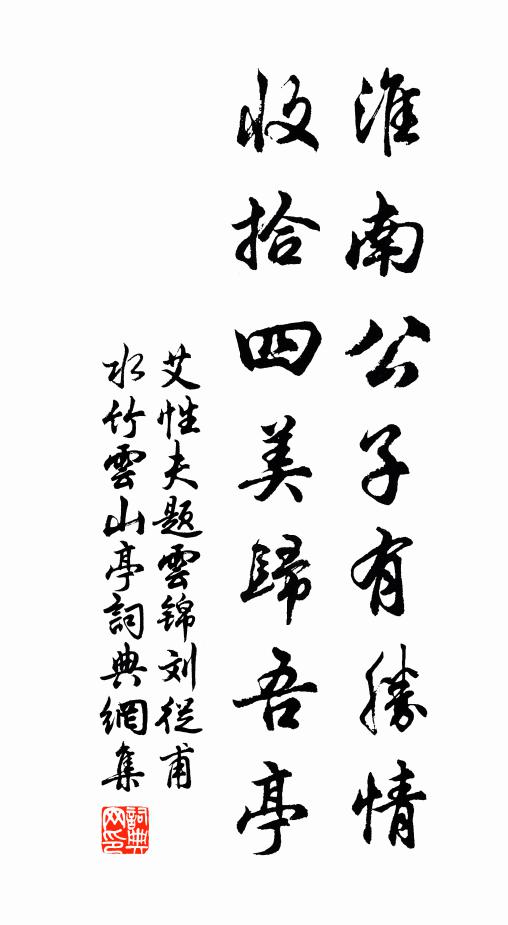 淮南公子有勝情
收拾四美歸吾亭
艾性夫題雲錦刘從甫
水竹雲山亭詞典網集
詞典
网印